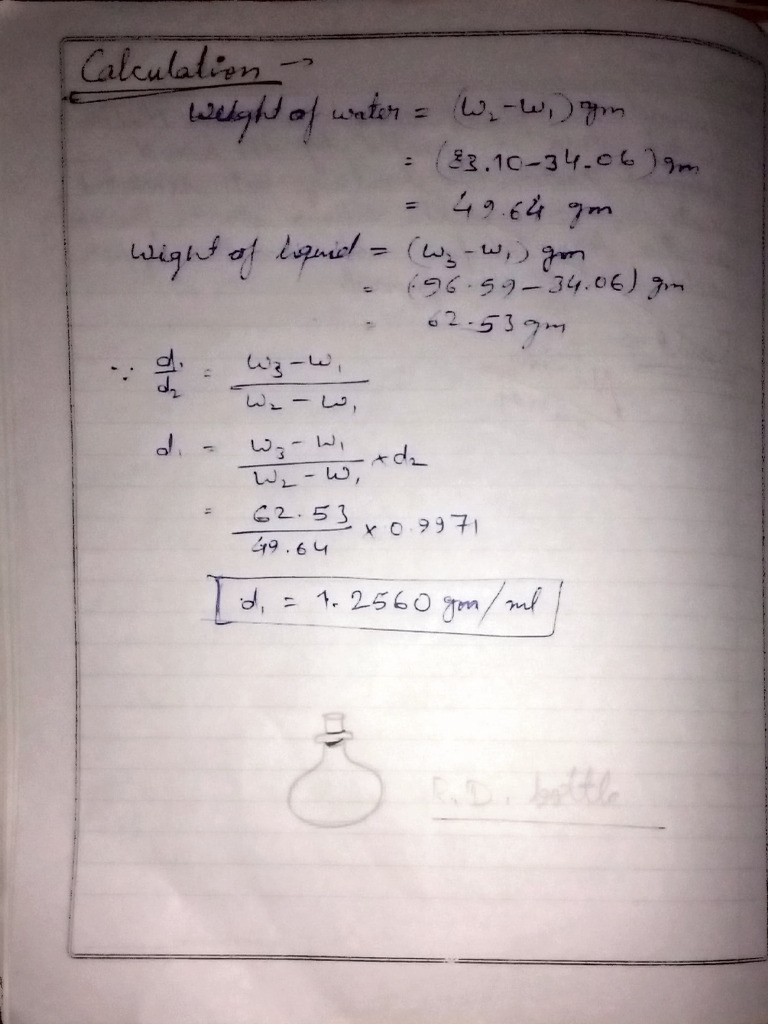 Calculation →
Weight of water = (W₂-W₁) gm
= (83.10-34.06) gm
= 49.64 gm
Wight of liquid = (W₃-W₁) gm
= (96.59-34.06) gm
= 62.53 gm
∵ d₁/d₂ = W₃-W₁ / W₂-W₁
d₁ = W₃-W₁ / W₂-W₁ × d₂
= 62.53 / 49.64 × 0.9971
d₁ = 1.2560 gm/ml
R.D. bottle